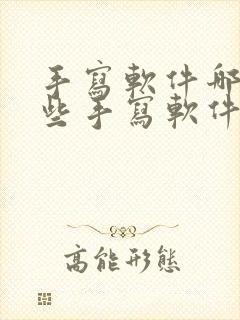 手寫軟件哪
些手寫軟件
高能形態